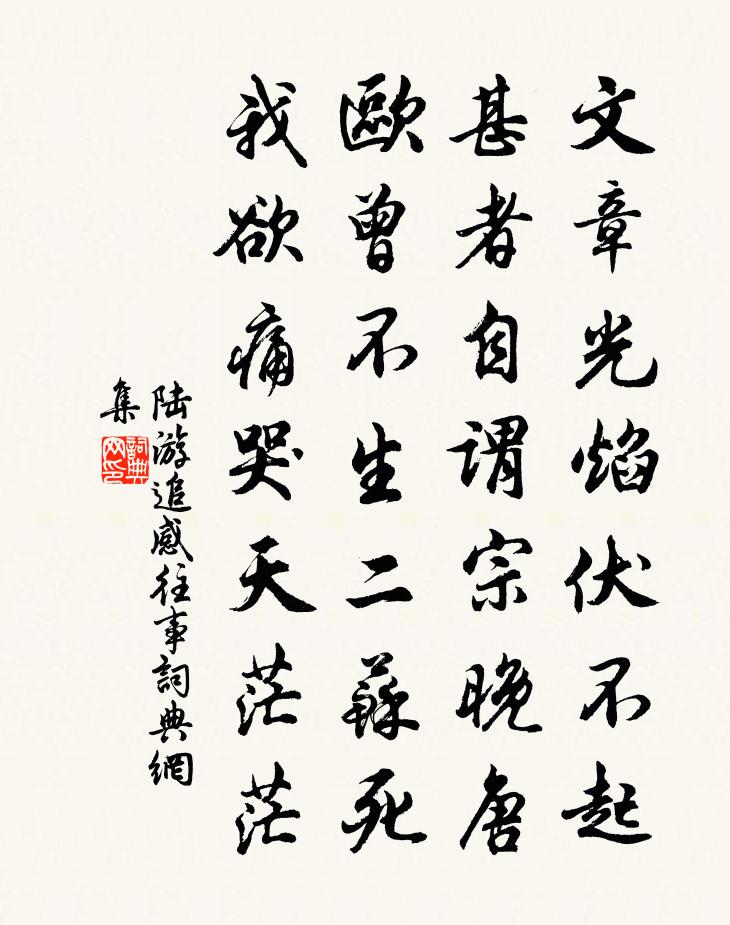 文章光焰伏不起
甚者自謂宗晚唐
歐曾不生二蘇死
我欲痛哭天茫茫
陆游追感往事詞典網
集
詞典
网印